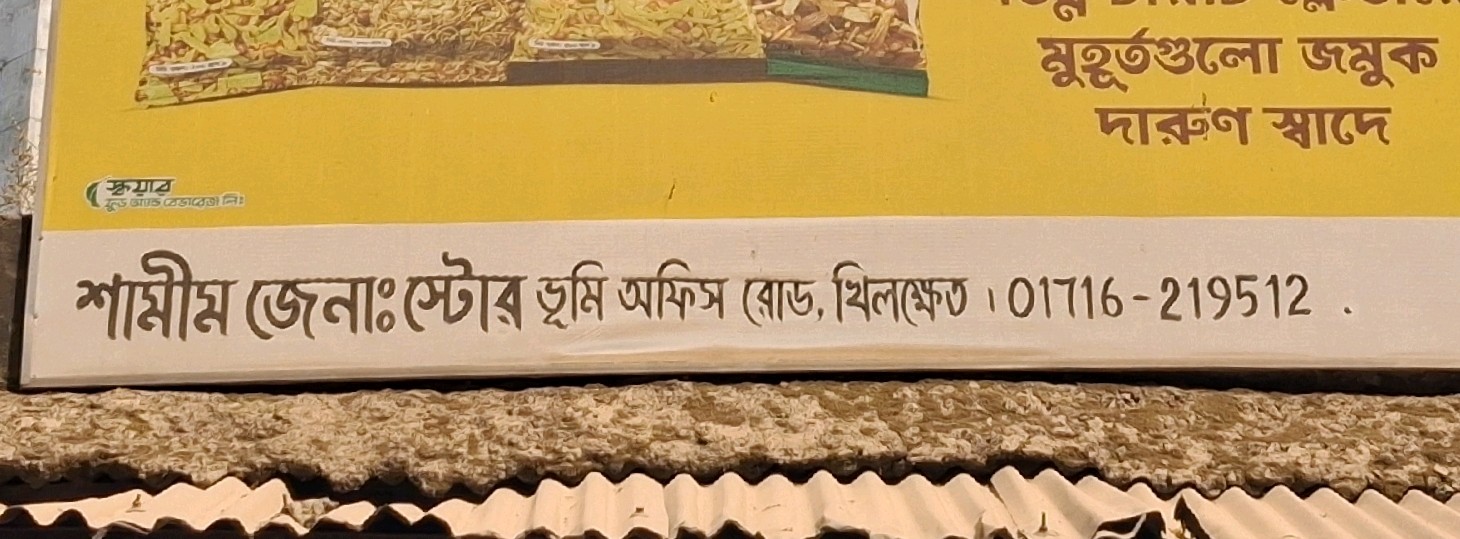 মুহূর্তগুলো জমুক
দারুণ স্বাদে
স্কয়ার
ফুড অ্যান্ড বেভারেজ লিঃ
শামীম জেনাঃ স্টোর ভূমি অফিস রোড, খিলক্ষেত । 01716-219512 .